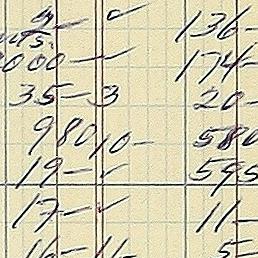 2- ✓ 136-
000- ✓ 174-
35-3 20-
980 10- 580
19- ✓ 595
17- ✓ 11-
16-11- 5-